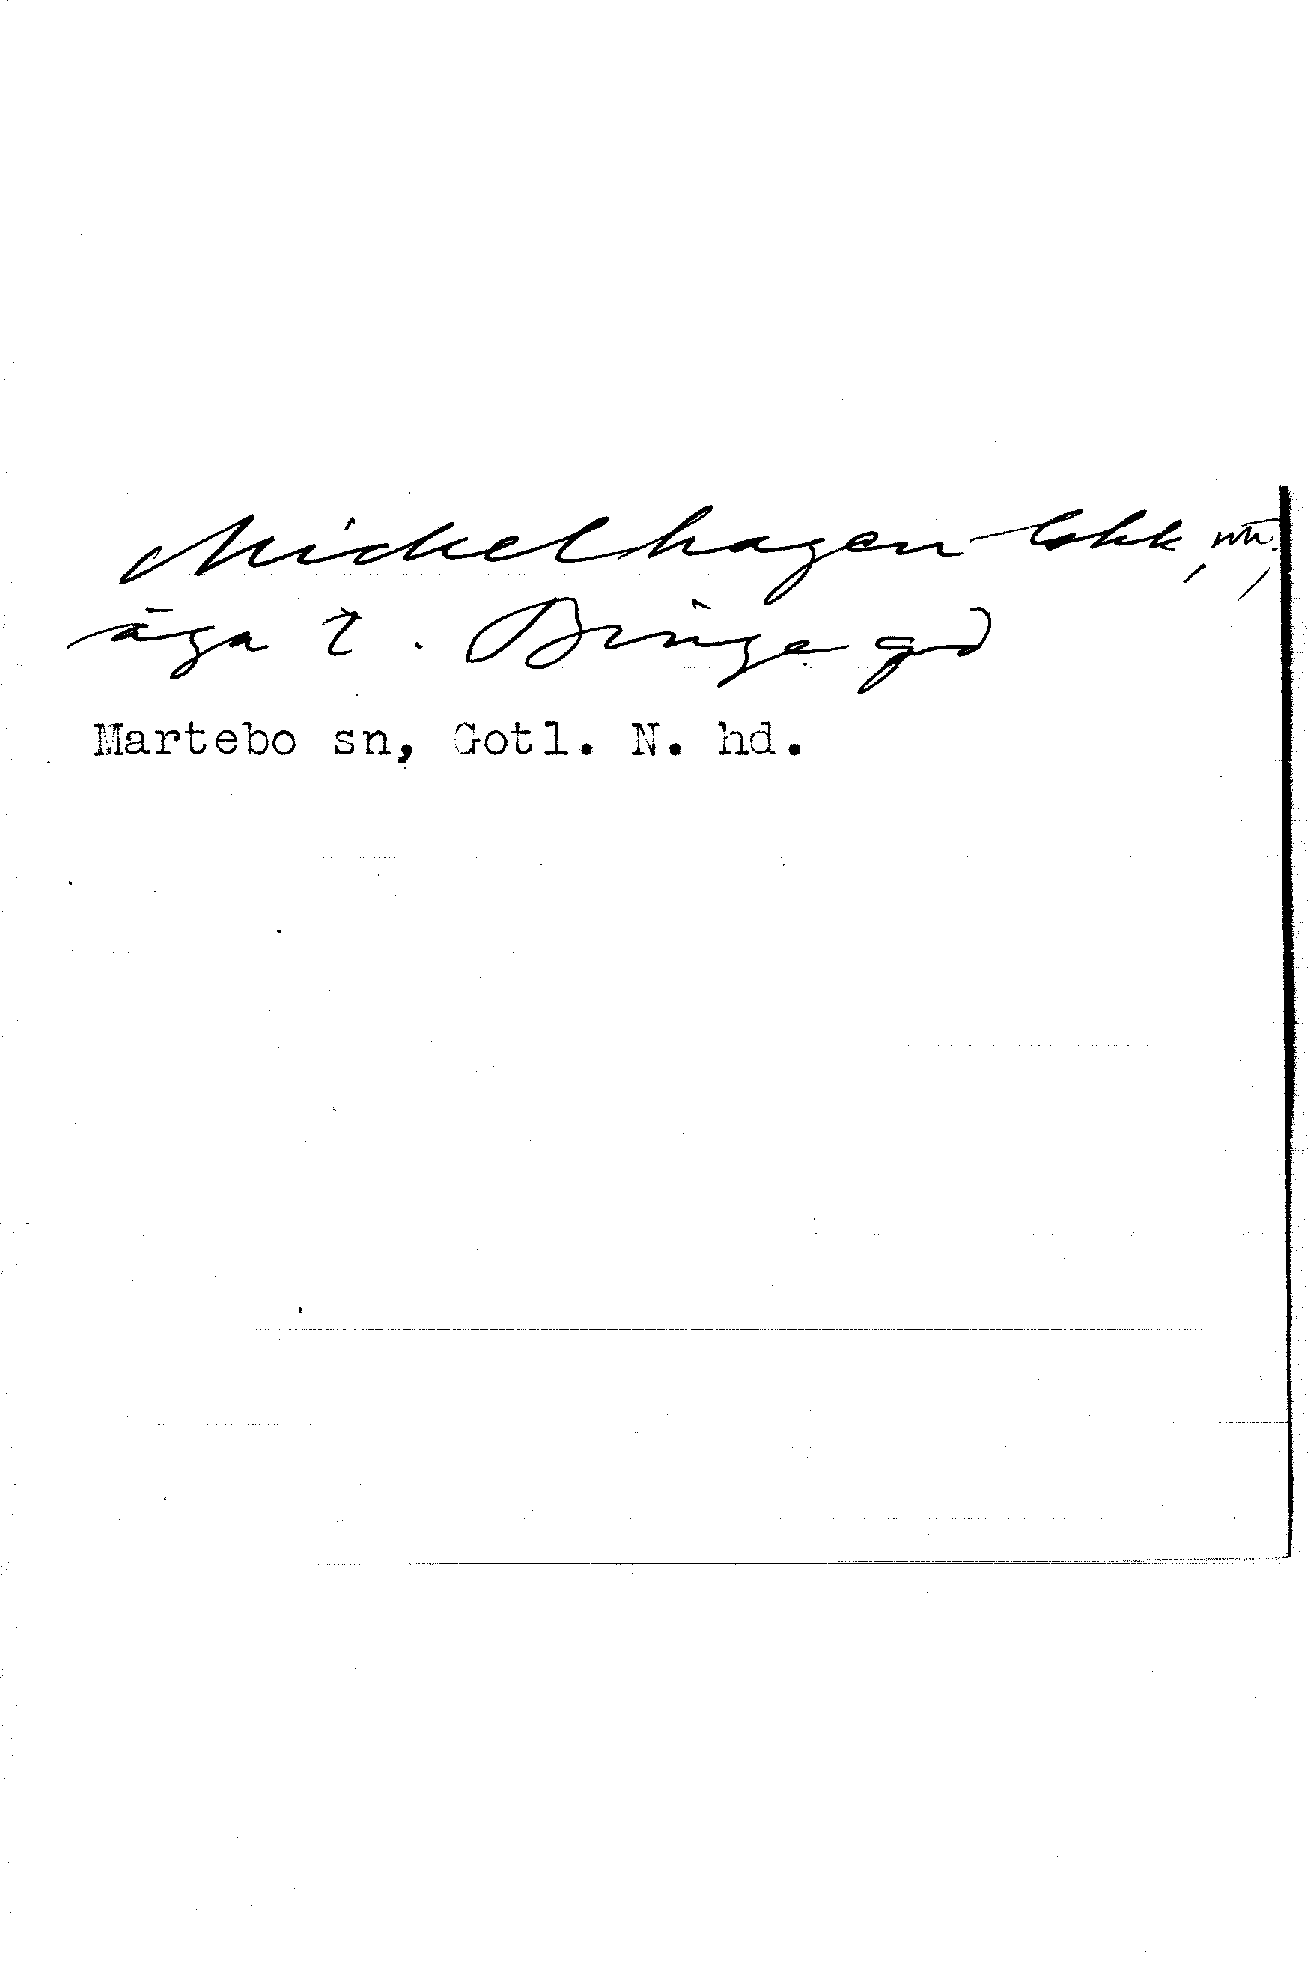 Mickelhagen
äga t. Binge gd
Martebo sn, Gotl. N. hd.